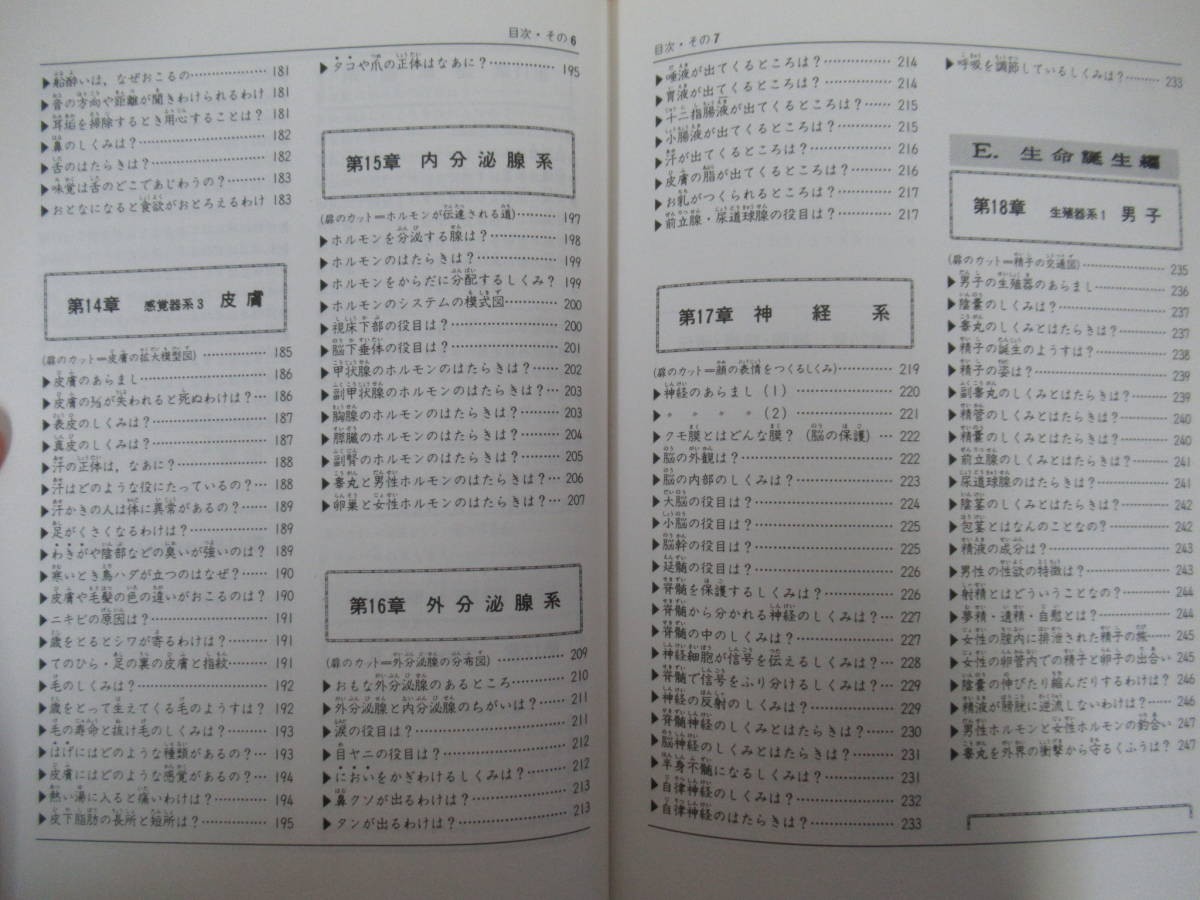 目次・その6
▶船酔いは，なぜおこるの……………181
▶音の方向や距離が聞きわけられるわけ 181
▶耳垢を掃除するとき用心することは？ 181
▶鼻のしくみは？……………182
▶舌のはたらきは？……………182
▶味覚は舌のどこであじわうの？………183
▶おとなになると食欲がおとろえるわけ 183
第14章 感覚器系3 皮膚
(扉のカット＝皮膚の拡大模型図)……………185
▶皮膚のあらまし……………186
▶皮膚の⅓が失われると死ぬわけは？…186
▶表皮のしくみは？……………187
▶真皮のしくみは？……………187
▶汗の正体は，なあに？……………188
▶汗はどのような役にたっているの？…188
▶汗かきの人は体に異常があるの？……189
▶足がくさくなるわけは？……………189
▶わきがや陰部などの臭いが強いのは？ 189
▶寒いとき鳥ハダが立つのはなぜ？……190
▶皮膚や毛髪の色の違いがおこるのは？ 190
▶ニキビの原因は？……………191
▶歳をとるとシワが寄るわけは？………191
▶てのひら・足の裏の皮膚と指紋………191
▶毛のしくみは？……………192
▶歳をとって生えてくる毛のようすは？ 192
▶毛の寿命と抜け毛のしくみは？………193
▶はげにはどのような種類があるの？…193
▶皮膚にはどのような感覚があるの？…194
▶熱い湯に入ると痛いわけは？…………194
▶皮下脂肪の長所と短所は？……………195
▶タコや爪の正体はなあに？……………195
第15章 内分泌腺系
(扉のカット＝ホルモンが伝達される道)…………197
▶ホルモンを分泌する腺は？……………198
▶ホルモンのはたらきは？……………199
▶ホルモンをからだに分配するしくみ？ 199
▶ホルモンのシステムの模式図…………200
▶視床下部の役目は？……………200
▶脳下垂体の役目は？……………201
▶甲状腺のホルモンのはたらきは？……202
▶副甲状腺のホルモンのはたらきは？…203
▶胸腺のホルモンのはたらきは？………203
▶膵臓のホルモンのはたらきは？………204
▶副腎のホルモンのはたらきは？………205
▶睾丸と男性ホルモンのはたらきは？…206
▶卵巣と女性ホルモンのはたらきは？…207
第16章 外分泌腺系
(扉のカット＝外分泌腺の分布図)……………209
▶おもな外分泌腺のあるところ…………210
▶外分泌腺と内分泌腺のちがいは？……211
▶涙の役目は？……………211
▶目ヤニの役目は？……………212
▶においをかぎわけるしくみは？………212
▶鼻クソが出るわけは？……………213
▶タンが出るわけは？……………213
目次・その7
▶唾液が出てくるところは？……………214
▶胃液が出てくるところは？……………214
▶十二指腸液が出てくるところは？……215
▶小腸液が出てくるところは？…………215
▶汗が出てくるところは？……………216
▶皮膚の脂が出てくるところは？………216
▶お乳がつくられるところは？…………217
▶前立腺・尿道球腺の役目は？…………217
第17章 神経系
(扉のカット＝顔の表情をつくるしくみ)…………219
▶神経のあらまし（1）……………220
▶〃　〃　〃（2）……………221
▶クモ膜とはどんな膜？（脳の保護）…222
▶脳の外観は？……………222
▶脳の内部のしくみは？……………223
▶大脳の役目は？……………224
▶小脳の役目は？……………225
▶脳幹の役目は？……………225
▶延髄の役目は？……………226
▶脊髄を保護するしくみは？……………226
▶脊髄から分かれる神経のしくみは？…227
▶脊髄の中のしくみは？……………227
▶神経細胞が信号を伝えるしくみは？…228
▶脊髄で信号をふり分けるしくみは？…229
▶神経の反射のしくみは？……………229
▶脊髄神経のしくみとはたらきは？……230
▶脳神経のしくみとはたらきは？………231
▶半身不髄になるしくみは？……………231
▶自律神経のしくみは？……………232
▶自律神経のはたらきは？……………233
▶呼吸を調節しているしくみは？………233
E. 生命誕生編
第18章 生殖器系1 男子
(扉のカット＝精子の交通図)……………235
▶男子の生殖器のあらまし……………236
▶陰嚢のしくみは？……………237
▶睾丸のしくみとはたらきは？…………237
▶精子の誕生のようすは？……………238
▶精子の姿は？……………239
▶副睾丸のしくみとはたらきは？………239
▶精管のしくみとはたらきは？…………240
▶精嚢のしくみとはたらきは？…………240
▶前立腺のしくみとはたらきは？………241
▶尿道球腺のはたらきは？……………241
▶陰茎のしくみとはたらきは？…………242
▶包茎とはなんのことなの？……………242
▶精液の成分は？……………243
▶男性の性欲の特徴は？……………243
▶射精とはどういうことなの？…………244
▶夢精・遺精・自慰とは？……………244
▶女性の膣内に排泄された精子の旅……245
▶女性の卵管内での精子と卵子の出合い 245
▶陰嚢の伸びたり縮んだりするわけは？ 246
▶精液が膀胱に逆流しないわけは？……246
▶男性ホルモンと女性ホルモンの釣合い 247
▶睾丸を外界の衝撃から守るくふうは？ 247